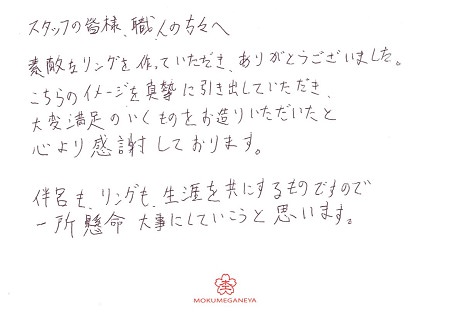 スタッフの皆様、職人の方々へ
素敵なリングを作っていただき、ありがとうございました。
こちらのイメージを真摯に引き出していただき、
大変満足のいくものをお造りいただいたと
心より感謝しております。
伴侶も、リングも、生涯を共にするものですので
一所懸命 大事にしていこうと思います。
MOKUMEGANEYA